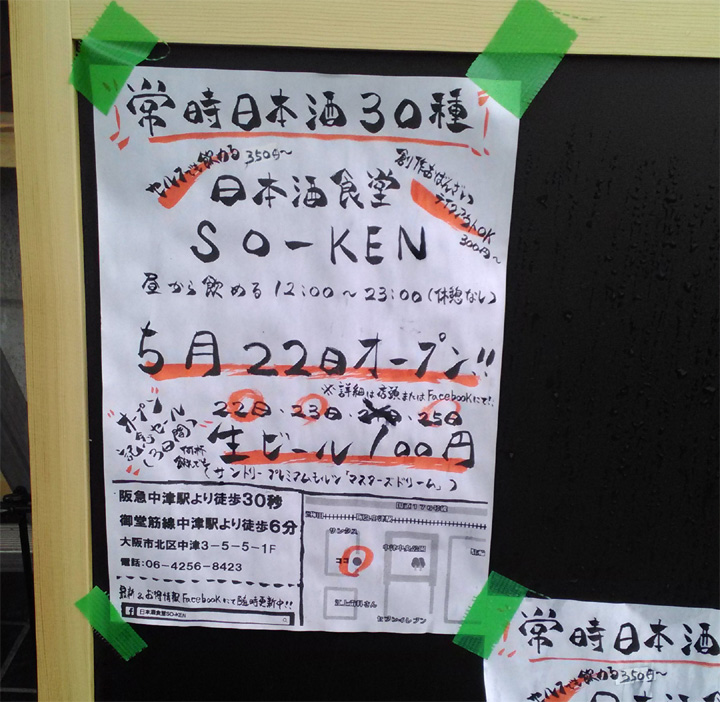 常時日本酒30種
セルフでも飲める 350円〜
創作おばんざい
テイクアウトOK
300円〜
日本酒食堂
SO-KEN
昼から飲める 12:00〜23:00(休憩なし)
5月22日オープン!!
※詳細は店頭またはFacebookにて!
22日、23日、24日、25日
オープン
記念セール
(3日間)
何杯
飲んでも
生ビール100円
(サントリープレミアムモルツ「マスターズドリーム」)
阪急中津駅より徒歩30秒
御堂筋線中津駅より徒歩6分
大阪市北区中津3-5-5-1F
電話:06-4256-8423
最新&お得情報Facebookにて随時更新中!!
f 日本酒食堂SO-KEN
国道176号線
ココ
セブンイレブン
常時日本酒
セルフでも飲める 350円〜
日本酒